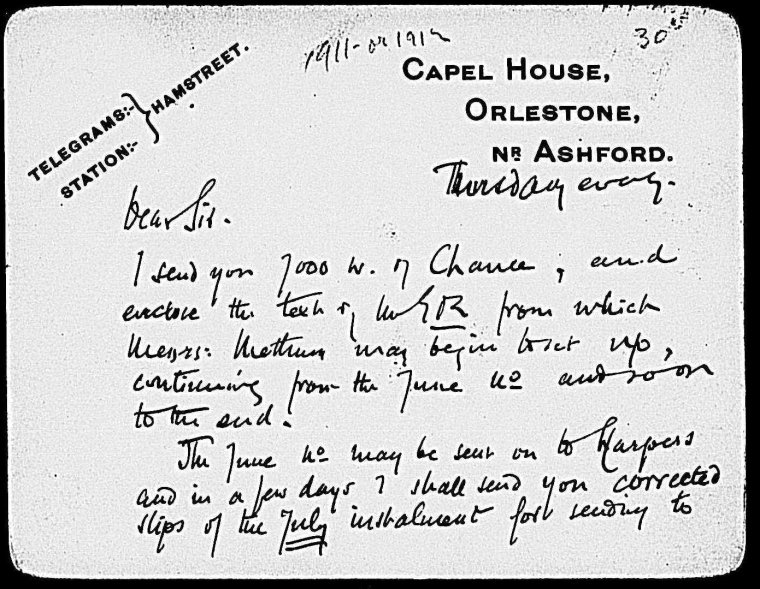 1911 - or 1912
30
TELEGRAMS:-
STATION:-
HAMSTREET.
CAPEL HOUSE,
ORLESTONE,
NR ASHFORD.
Thursday eveng.
Dear Sir.
I send you 7000 w. of Chance; and
enclose the text of the ER from which
Messrs: Methuen may begin to set up,
continuing from the June No and so on
to the end.
The June No may be sent on to Harpers
and in a few days I shall send you corrected
slips of the July instalment for sending to